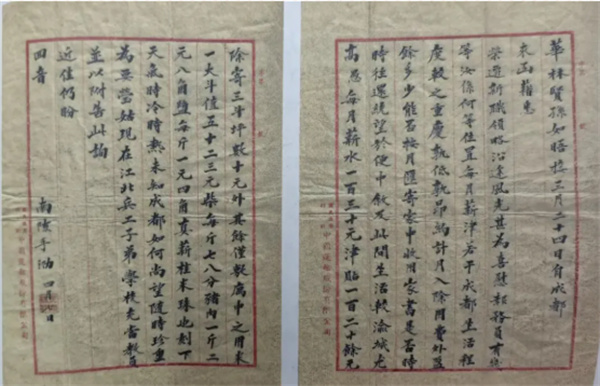 華林賢孫如晤接三月二十四日自成都
來函藉悉
榮遷新職領略沿途風光甚為喜慰報務員有幾
等汝係何等位置每月薪津若干成都生活程
度較之重慶孰低孰昂約計月入除用費外盈
餘多少能否按月匯寄家中收用家書是否時
時往還統望於便中敘及此間生活較渝城尤
高 每月薪水一百三十元津貼一百二十餘元
除寄三 坪數十元外其餘僅敷 中之用米
一大斗值五十二三元柴每斤七八分豬肉一斤二
元八角鹽每斤一元四角真薪桂米珠也刻下
天氣時冷時熱未知成都如何尚望隨時珍重
為要瑩姑現在江北兵工子弟學校充當教員
並以附告此詢
近佳仍盼
回音
南陔手泐 四月 日